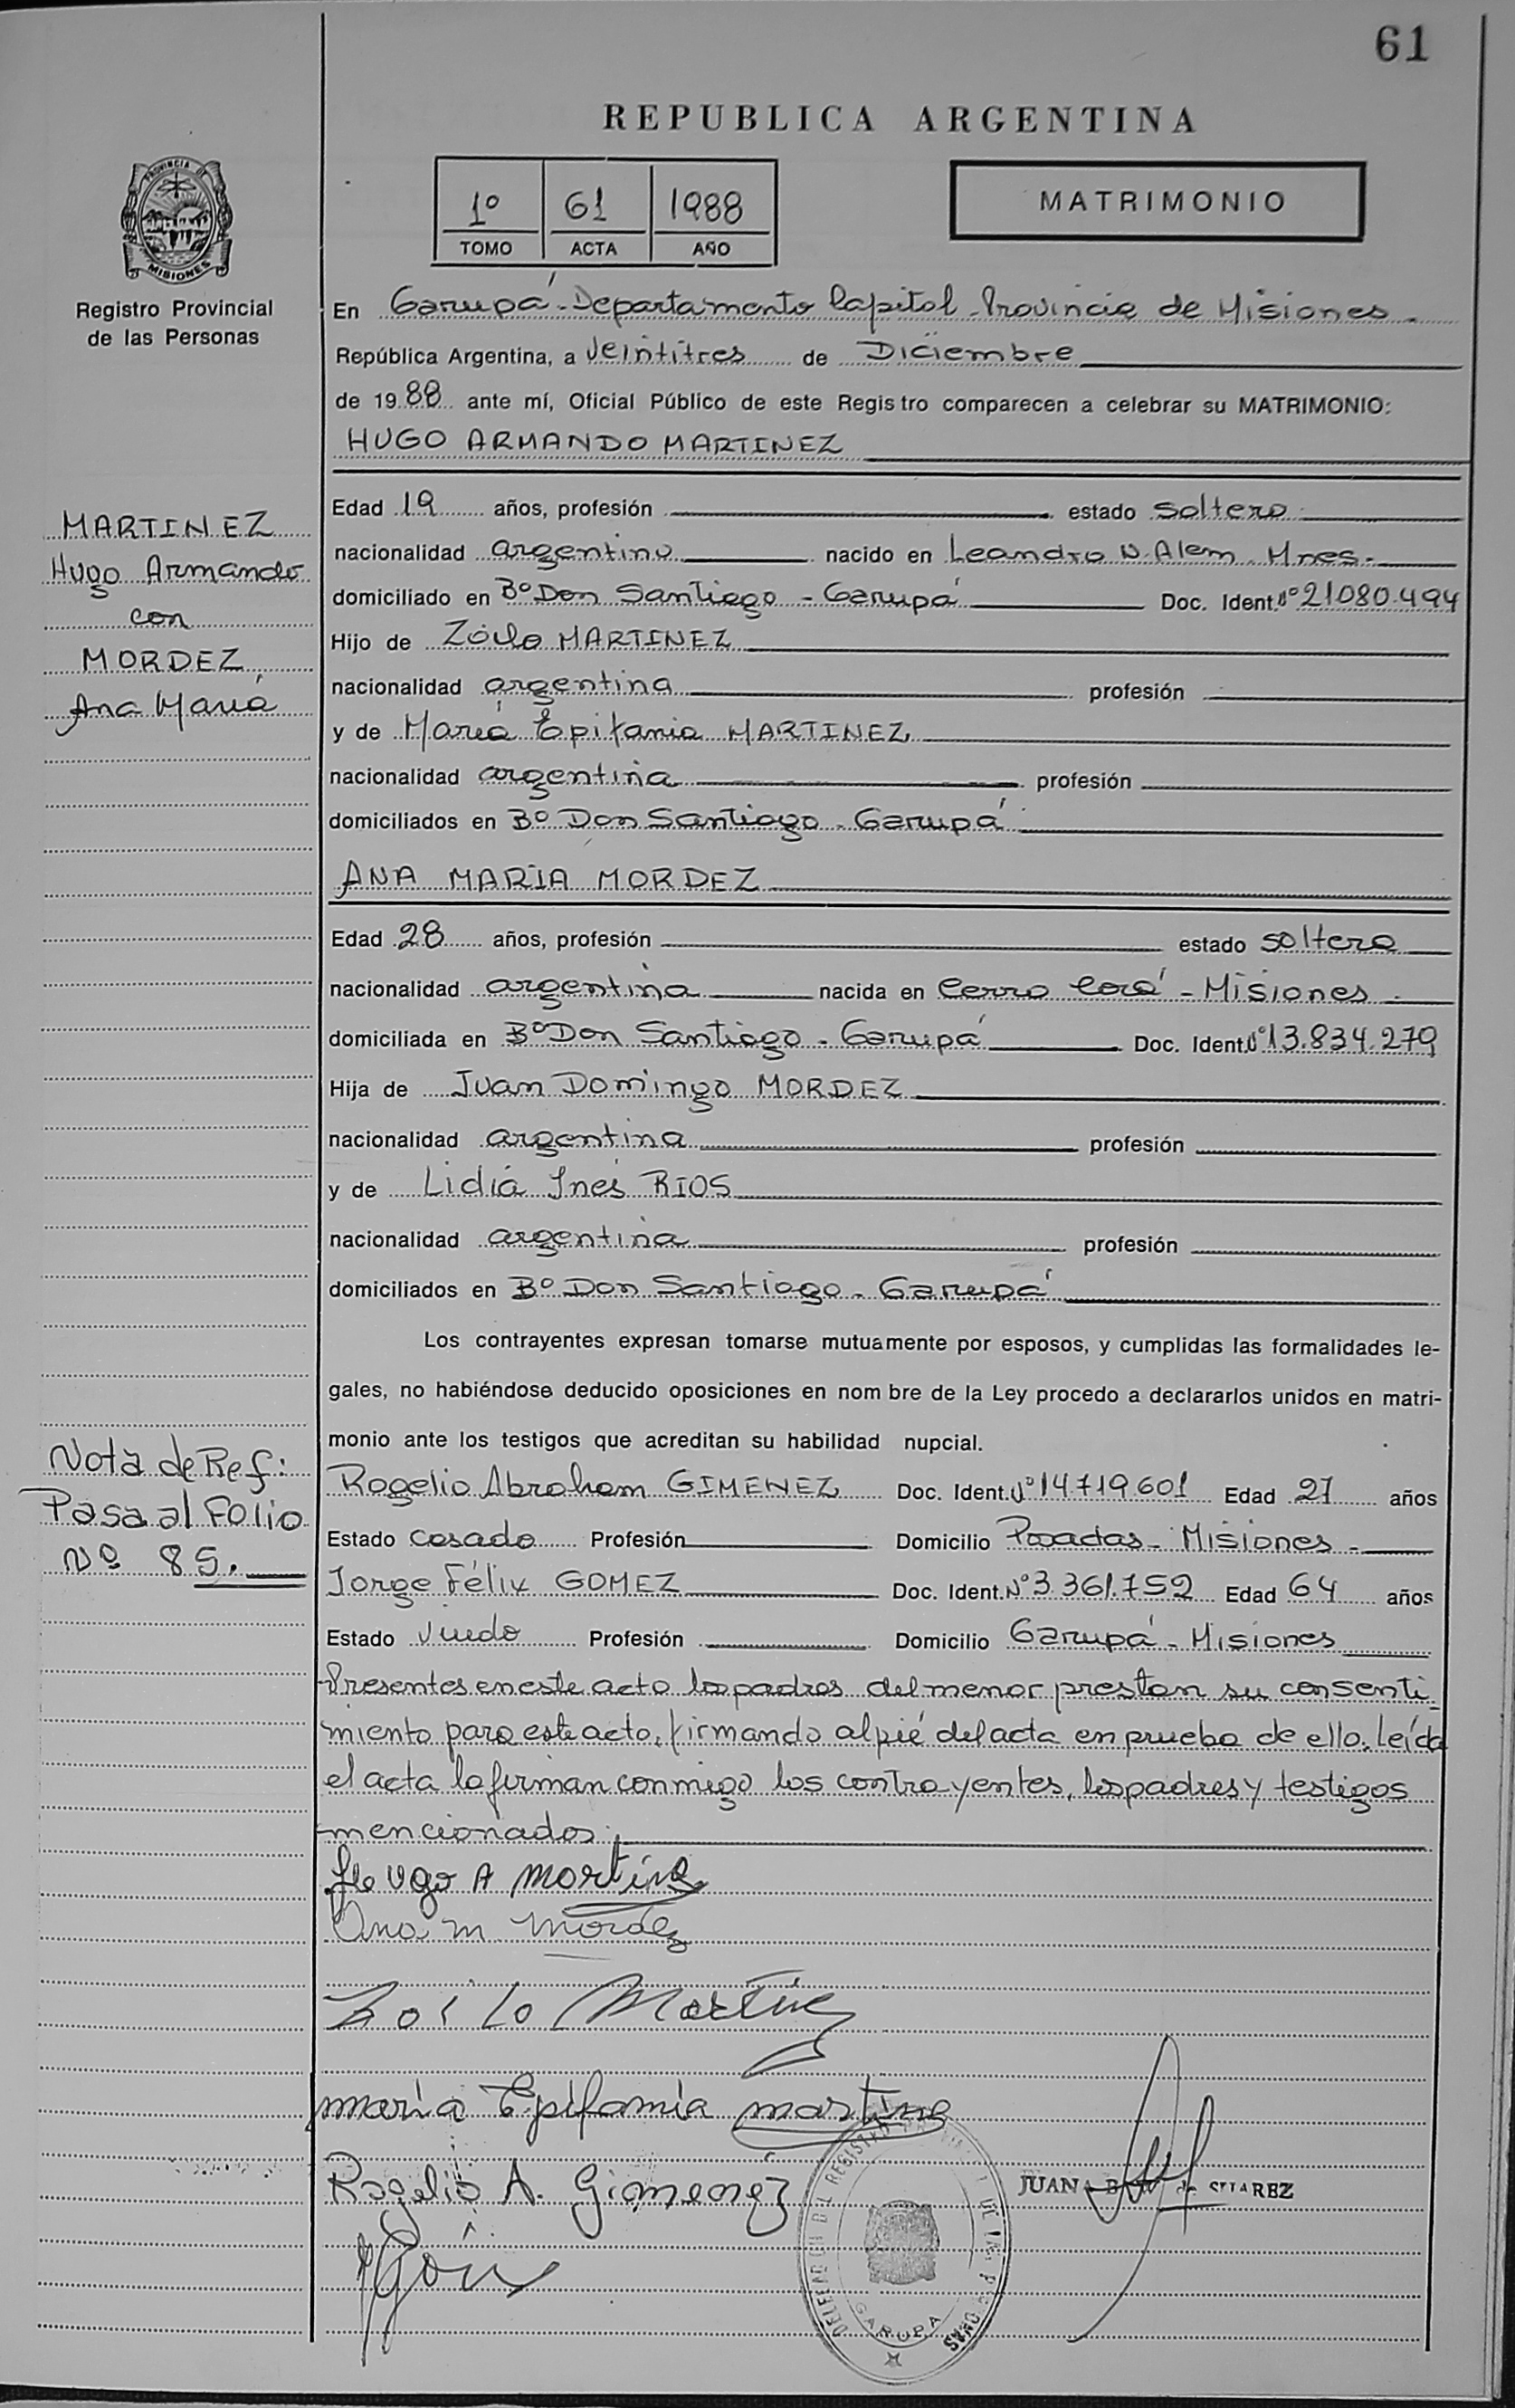 61
REPUBLICA ARGENTINA
PROVINCIA DE
MISIONES
Registro Provincial
de las Personas
1º 61 1988
TOMO ACTA AÑO
MATRIMONIO
En Garupá - Departamento Capital - Provincia de Misiones -
República Argentina, a veintitres de Diciembre
de 1988 ante mí, Oficial Público de este Registro comparecen a celebrar su MATRIMONIO:
HUGO ARMANDO MARTINEZ
MARTINEZ
Hugo Armando
con
MORDEZ,
Ana María
Edad 19 años, profesión estado soltero
nacionalidad argentino nacido en Leandro N. Alem - Mnes -
domiciliado en Bº Don Santiago - Garupá Doc. Ident. Nº 21080.494
Hijo de Zoilo MARTINEZ
nacionalidad argentina profesión
y de María Epifania MARTINEZ
nacionalidad argentina profesión
domiciliados en Bº Don Santiago - Garupá
ANA MARIA MORDEZ
Edad 28 años, profesión estado soltera
nacionalidad argentina nacida en Cerro Corá - Misiones -
domiciliada en Bº Don Santiago - Garupá Doc. Ident. Nº 13.834.279
Hija de Juan Domingo MORDEZ
nacionalidad argentina profesión
y de Lidia Inés RIOS
nacionalidad argentina profesión
domiciliados en Bº Don Santiago - Garupá
Los contrayentes expresan tomarse mutuamente por esposos, y cumplidas las formalidades le-
gales, no habiéndose deducido oposiciones en nombre de la Ley procedo a declararlos unidos en matri-
monio ante los testigos que acreditan su habilidad nupcial.
Nota de Ref:
Pasa al Folio
Nº 85.
Rogelio Abraham GIMENEZ Doc. Ident. Nº 14719601 Edad 27 años
Estado casado Profesión Domicilio Posadas - Misiones -
Jorge Félix GOMEZ Doc. Ident. Nº 3.361.752 Edad 64 años
Estado viudo Profesión Domicilio Garupá - Misiones
Presentes en este acto los padres del menor prestan su consenti-
miento para este acto, firmando al pié del acta en prueba de ello. Leída
el acta la firman conmigo los contrayentes, los padres y testigos
mencionados.
Hugo A Martine
Ana M. Mordez
Zoilo Martinez
maria Epifamia martine
Rogelio A. Gimenez
JUANA DE SUAREZ
DELEGACION DEL REGISTRO DE LAS PERSONAS
GARUPA